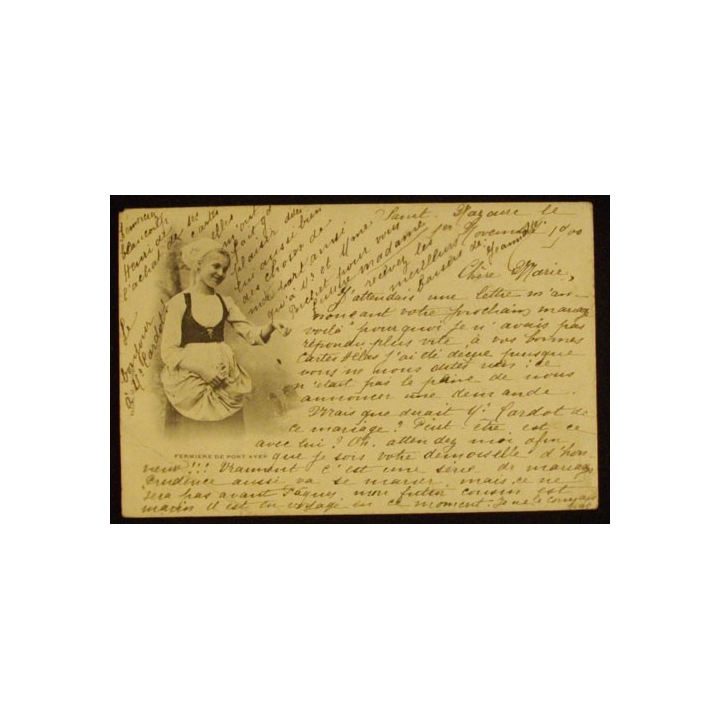 Saint-Nazaire le
Novembre 1900
Chère Marie,
J'attendais une lettre m'an-
nonçant votre prochain mariage
voilà pourquoi je n'avais pas
répondu plus vite à vos bonnes
cartes. Hélas j'ai été déçue puisque
vous ne nous dites rien: ce
n'était pas la peine de nous
annoncer une demande.
Mais que dirait Mr Cardot de
ce mariage? Peut être est ce
avec lui? Oh, attendez moi afin
que je sois votre demoiselle d'hon-
neur!!! Vraiment c'est une série de mariages
Prudence aussi va se marier mais ce ne
sera pas avant Pâques, mon futur cousin est
marin il est en voyage en ce moment. Je ne le connais
pas
Remerciez
Henri de
l'achat de ses
cartes
elles
m'ont
fait
plaisir
aussi bien
des choses de
ma part aussi
qu'à Mr et Mme
pour vous
madame
recevez les
meilleurs
baisers de Jeanne
Le
bonjour
à Mr Cardot
FERMIÈRE DE PONT AVEN